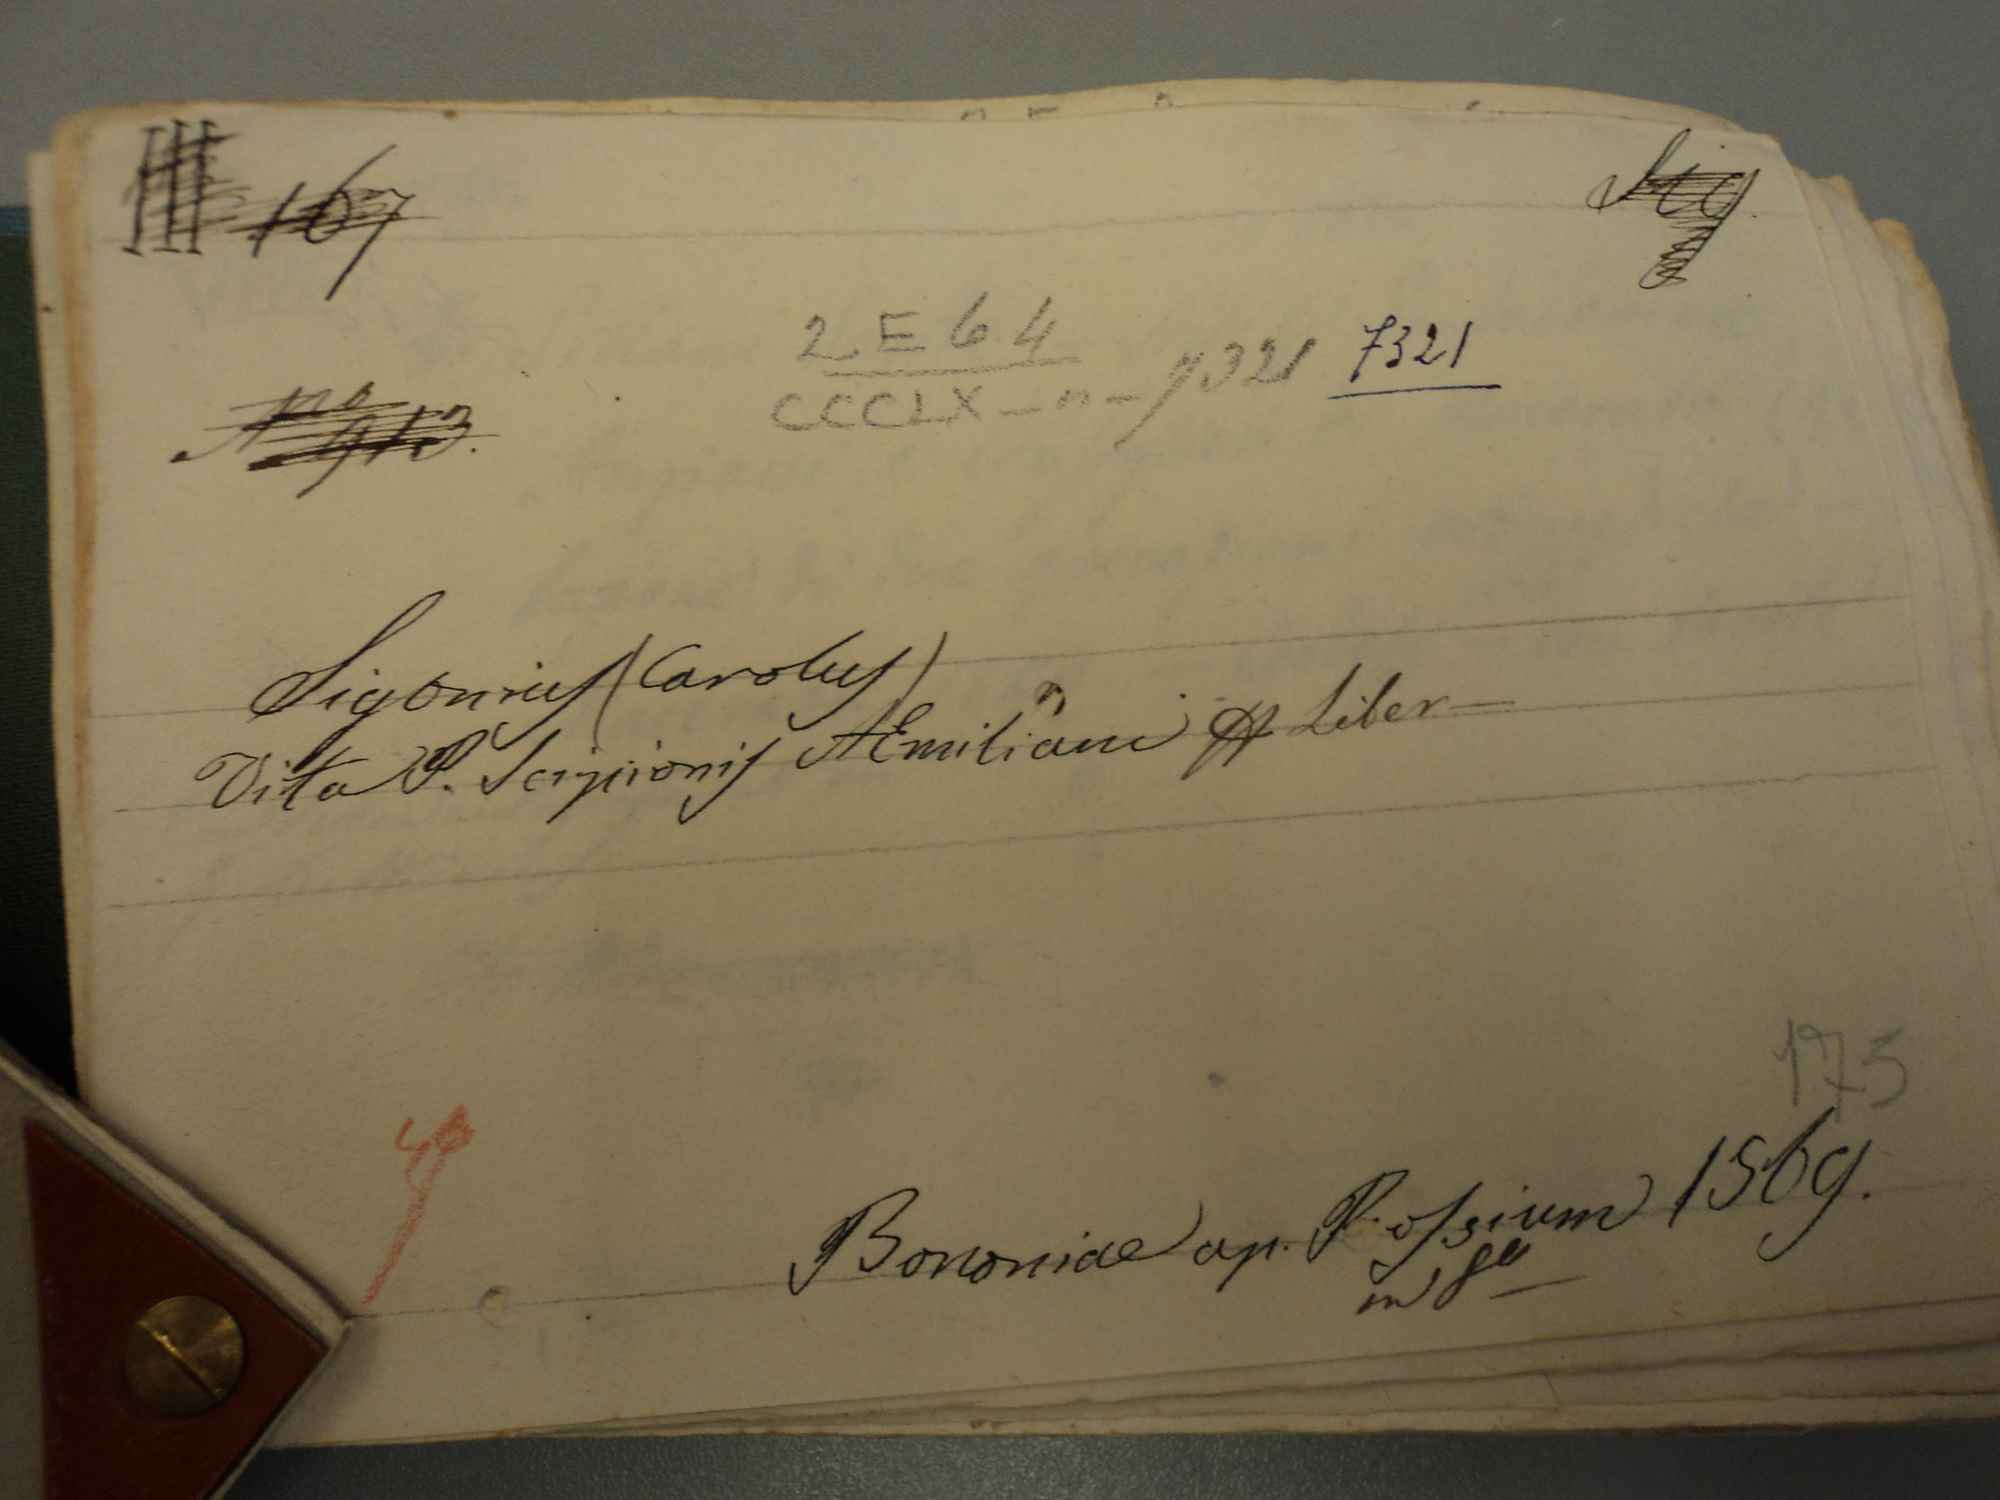 III 167
Sig
2 E 64
CCCLX - n - 7321 7321
No 913.
Sigonius (Carolus)
Vita P. Scipionis AEmiliani Liber
175
Bononiae ap. Rossium 1569.
in 8o